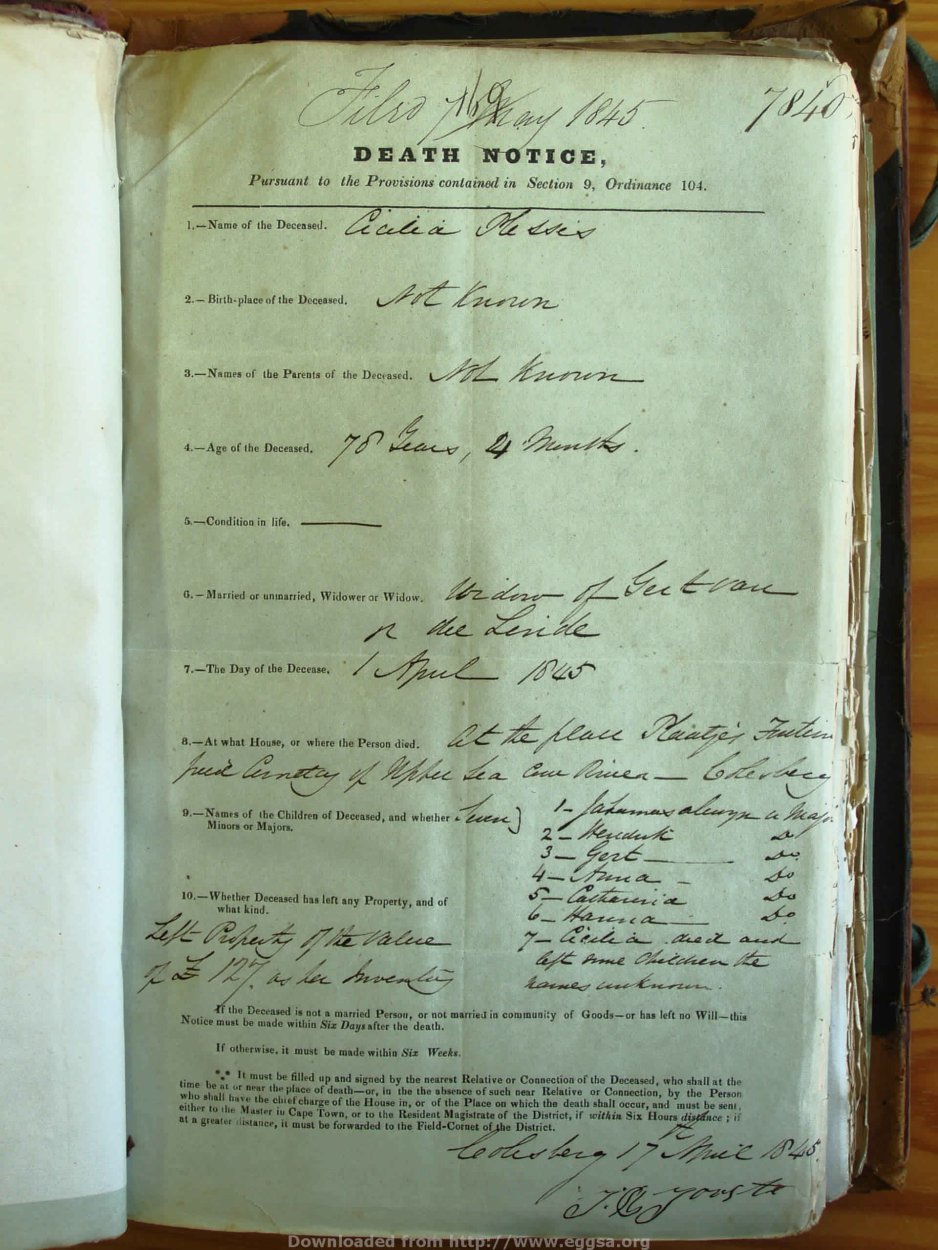 Filed 7 May 1845. 7840
DEATH NOTICE,
Pursuant to the Provisions contained in Section 9, Ordinance 104.
1.—Name of the Deceased. Cicilia Plessis
2.—Birth-place of the Deceased. Not Known
3.—Names of the Parents of the Deceased. Not Known
4.—Age of the Deceased. 78 Years, 4 Months.
5.—Condition in life. ———
6.—Married or unmarried, Widower or Widow. Widow of Gert van
der Linde
7.—The Day of the Decease. 1 April 1845
8.—At what House, or where the Person died. At the place Plaatjes Fontein
field Cornetcy of Upper Sea Cow River — Colesberg
9.—Names of the Children of Deceased, and whether Seven) 1— alewyn a Major
Minors or Majors. 2— Hendrik Do
3— Gert — Do
4— Anna — Do
10.—Whether Deceased has left any Property, and of 5— Catharina Do
what kind. 6— Hanna Do
Left Property of the value 7— Cicilia died and
left some children the
of £ 127. as per Inventory names unknown.
If the Deceased is not a married Person, or not married in community of Goods—or has left no Will—this
Notice must be made within Six Days after the death.
If otherwise, it must be made within Six Weeks.
*.* It must be filled up and signed by the nearest Relative or Connection of the Deceased, who shall at the
time be at or near the place of death—or, in the the absence of such near Relative or Connection, by the Person
who shall have the chief charge of the House in, or of the Place on which the death shall occur, and must be sent,
either to the Master in Cape Town, or to the Resident Magistrate of the District, if within Six Hours distance; if
at a greater distance, it must be forwarded to the Field-Cornet of the District.
Colesberg 17th April 1845.
Joubert
Downloaded from http://www.eggsa.org